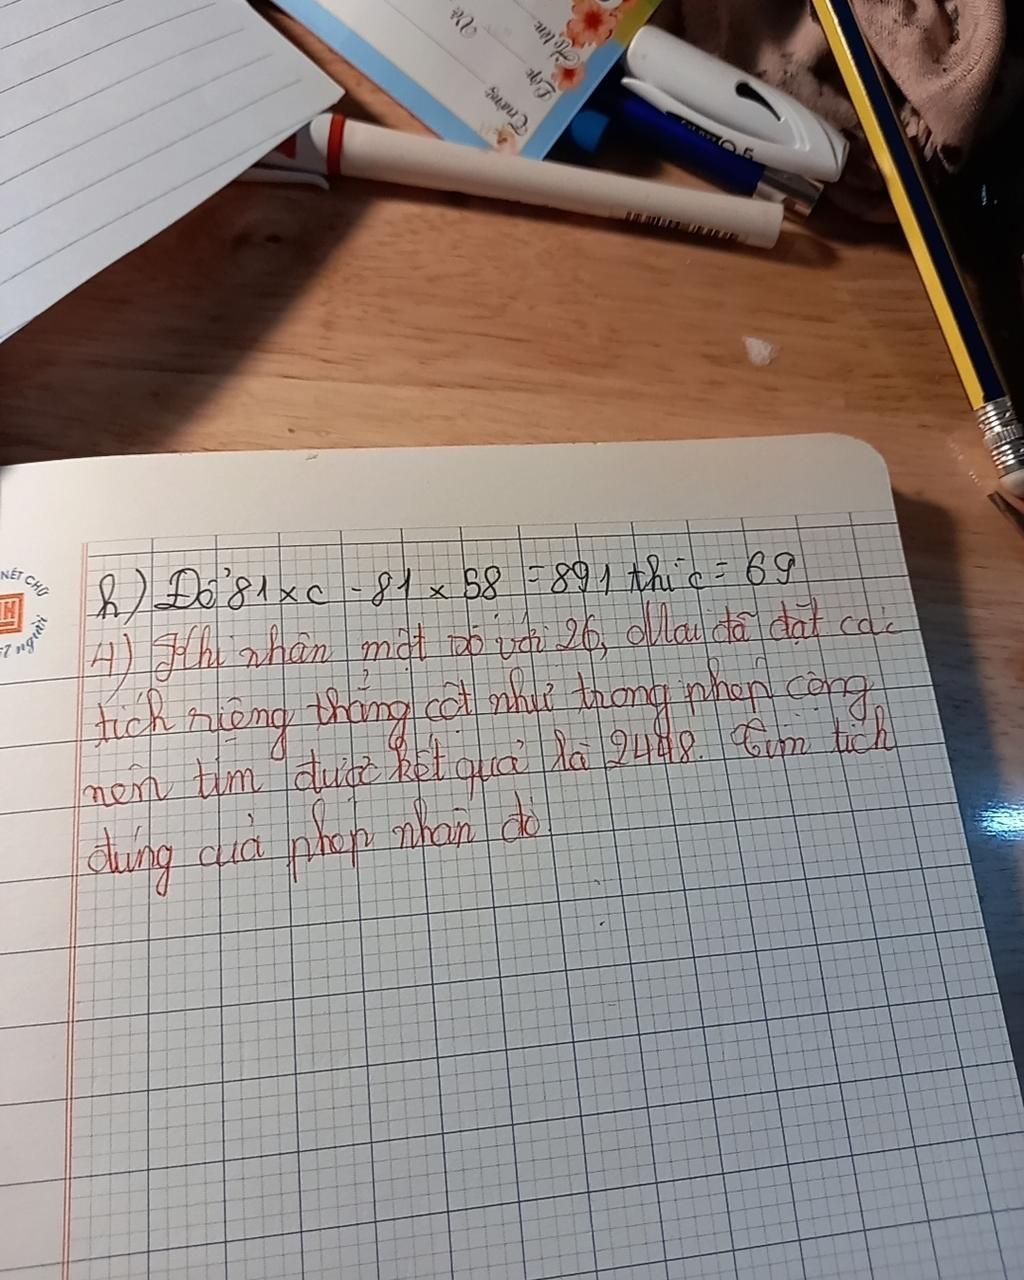 Trường
Lớp
Họ tên
Vở
0.5
NÉT CHỮ
h) Để 81 x c - 81 x 58 = 891 thì c = 69
4) Khi nhân một số với 26, Mai đã đặt các
tích riêng thẳng cột như trong phép cộng
nên tìm được kết quả là 2448. Tìm tích
đúng của phép nhân đó.